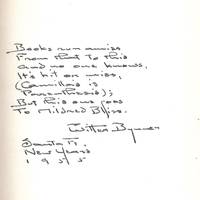 Books run amiss
From that to this
And no one knows,
It's hit or miss,
(Camilla's is
Parenthesis);
But this one goes
To Mildred Bliss.
Witter Bynner
Santa Fe
New Years
1955